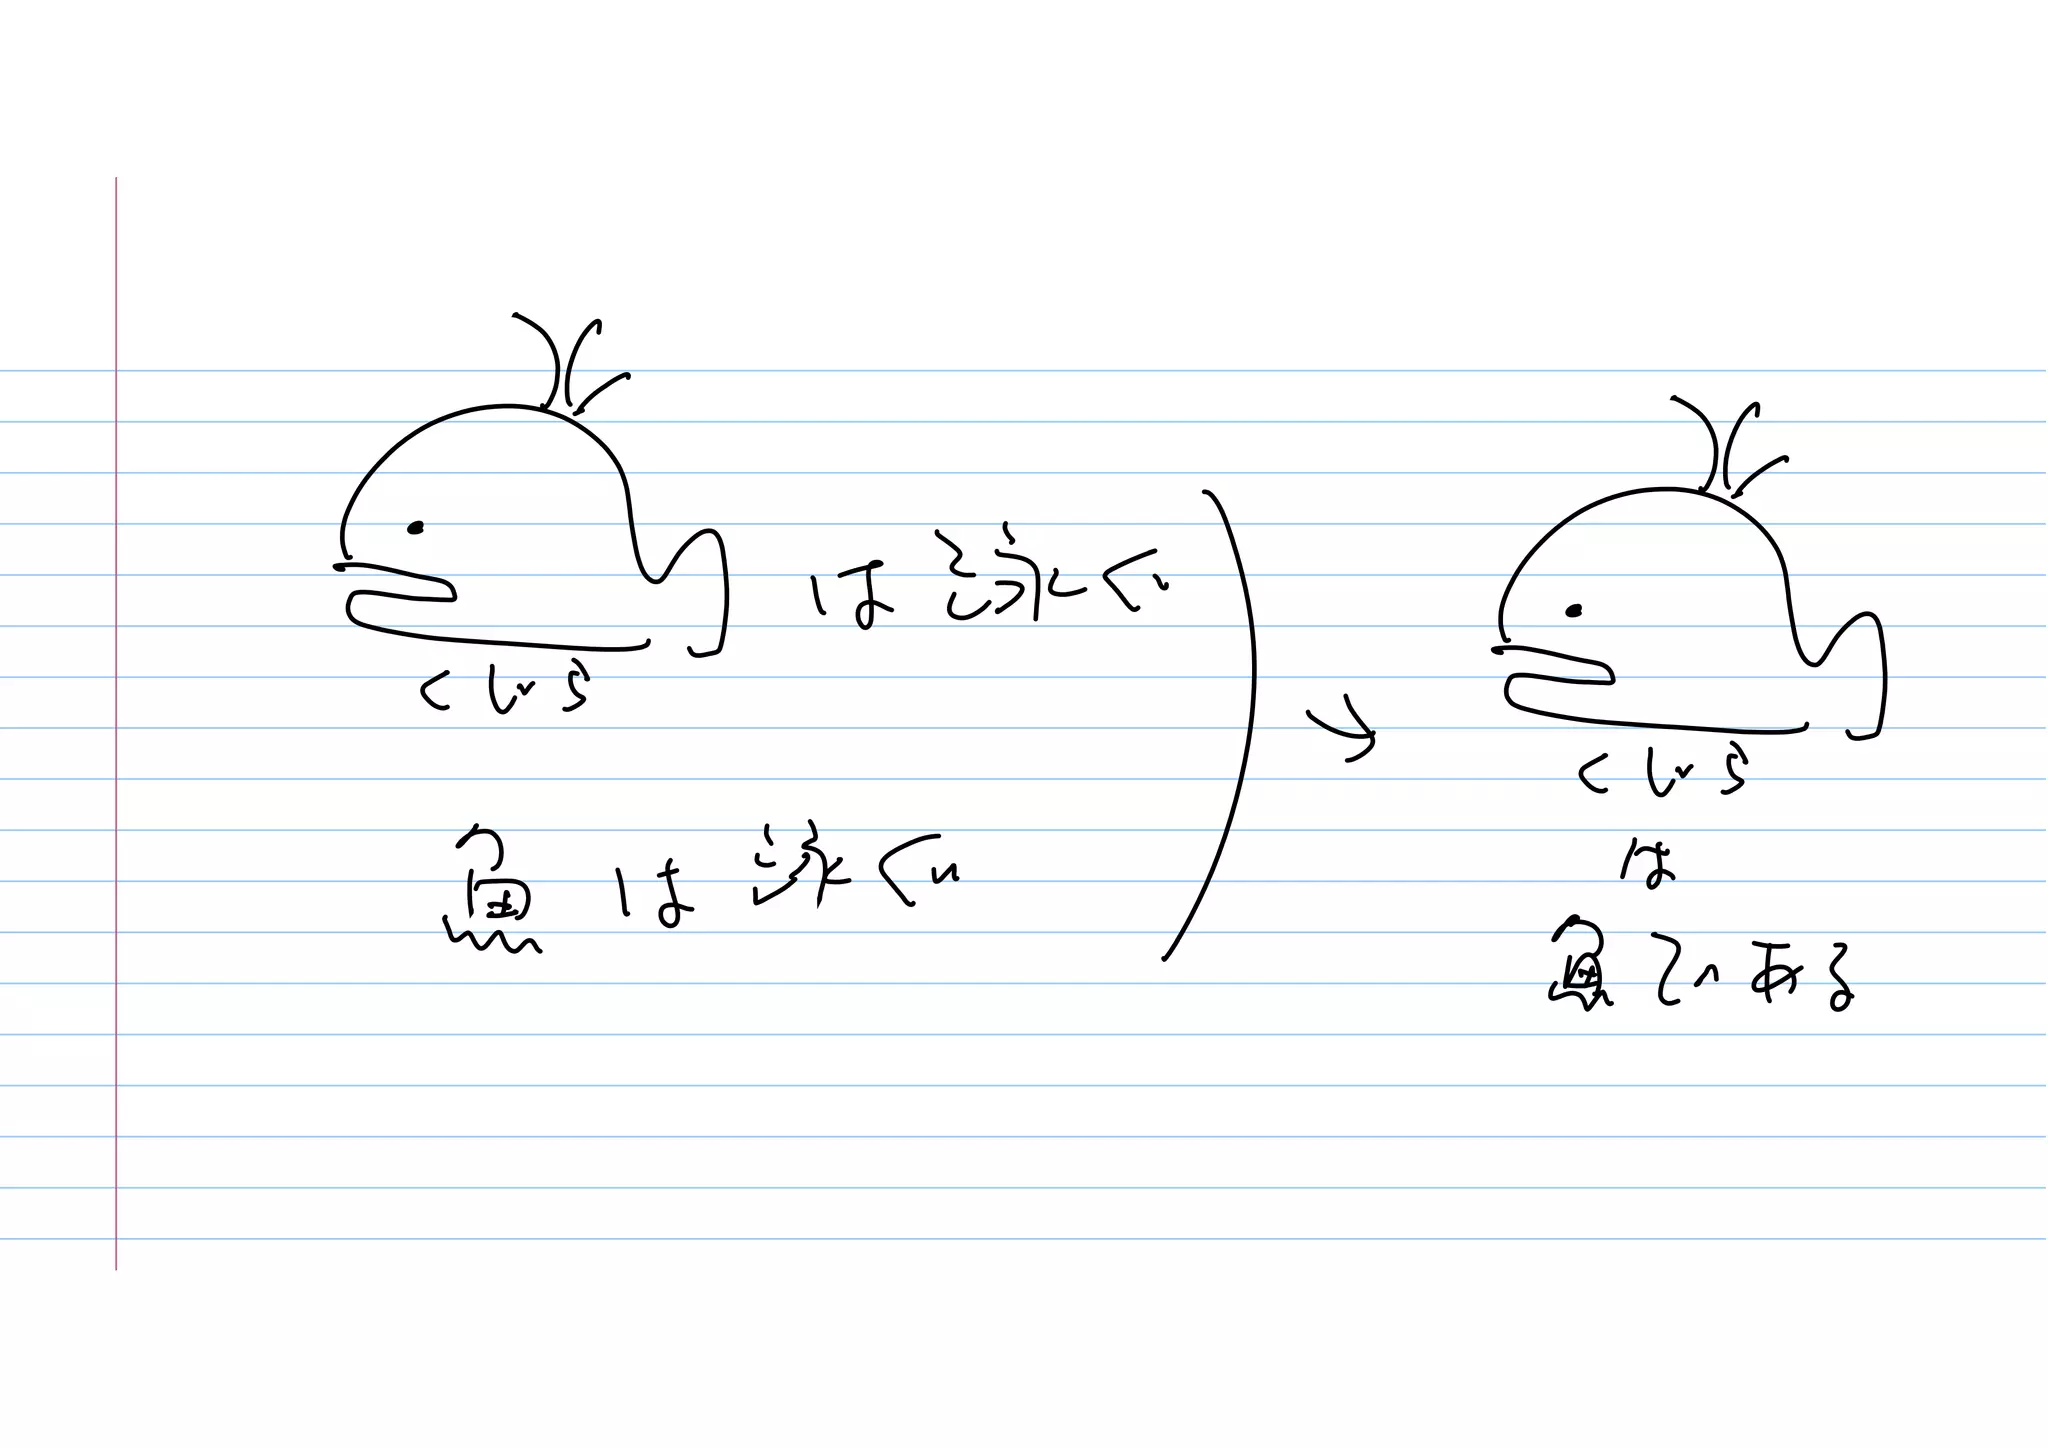 は泳ぐ
くじら
魚は泳ぐ
くじら
は
魚である